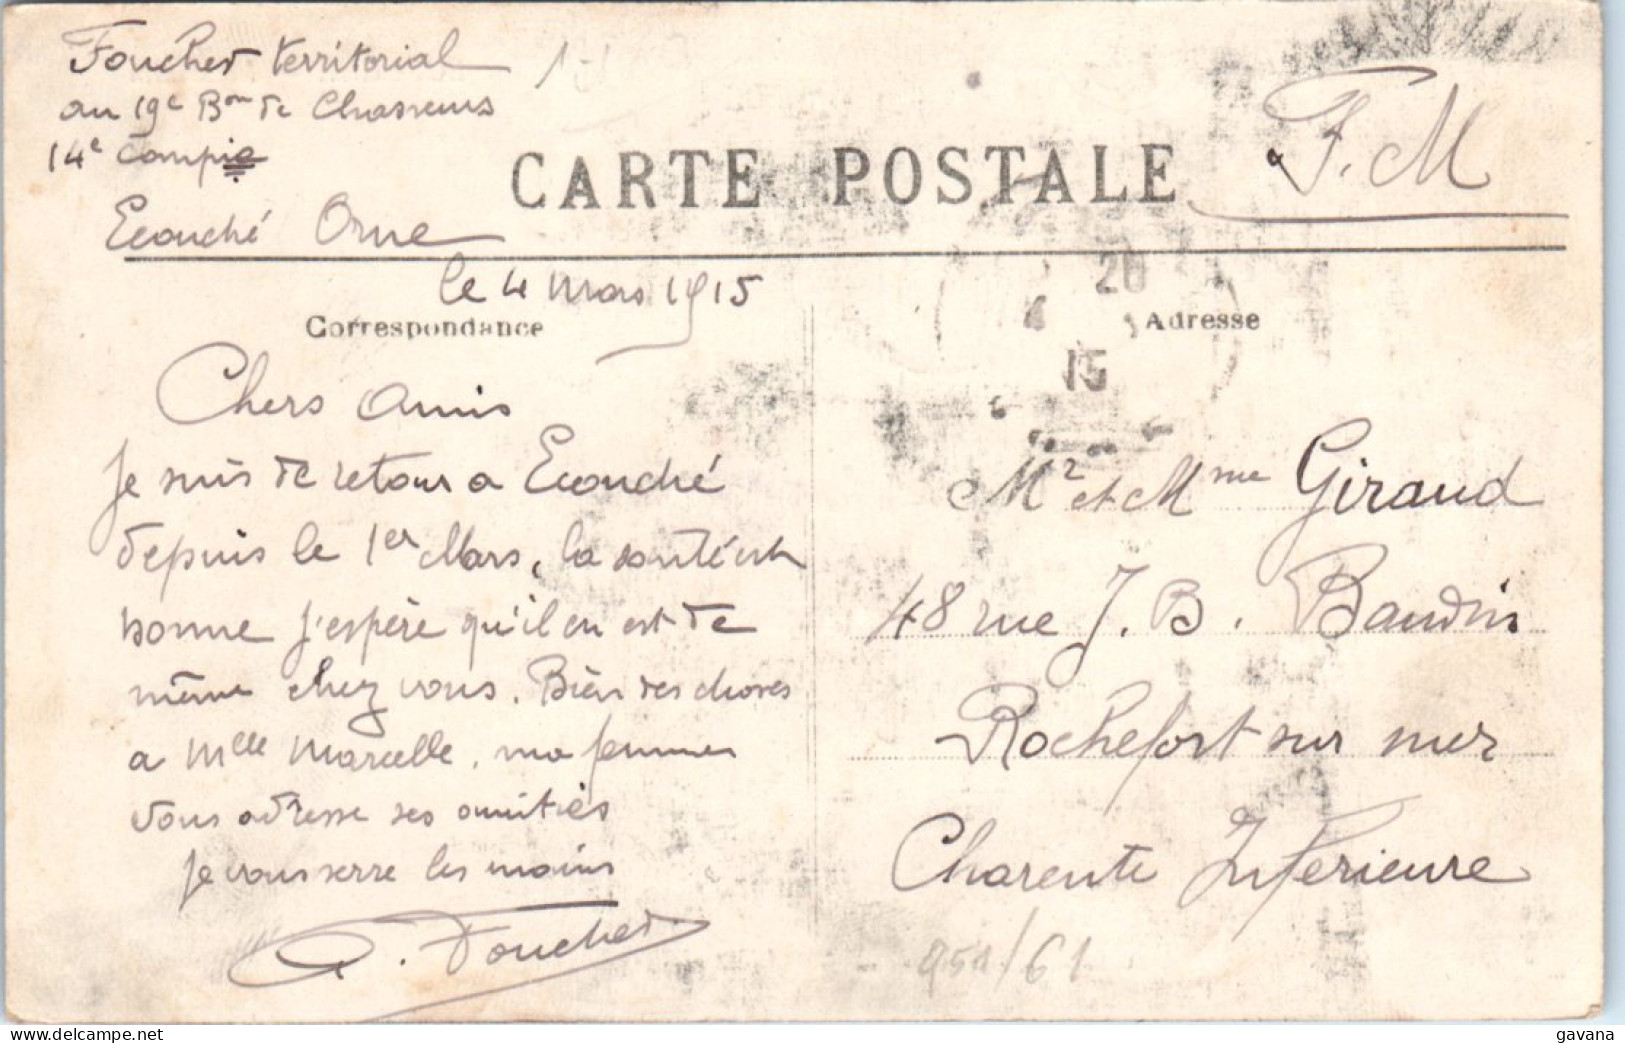 Foucher territorial
au 19e Bon de Chasseurs
14e Compie
Ecouché Orne
CARTE POSTALE
F.M
le 4 Mars 1915
Correspondance
Adresse
20
4
15
Chers Amis
Je suis de retour a Ecouché
depuis le 1er Mars, la santé est
bonne j'espère qu'il en est de
même chez vous. Bien des choses
a Mlle Marcelle, ma femme
vous adresse ses amitiés
je vous serre les mains
Foucher
Mr et Mme Giraud
48 rue J. B. Baudin
Rochefort sur mer
Charente Inferieure
951/61
gavana